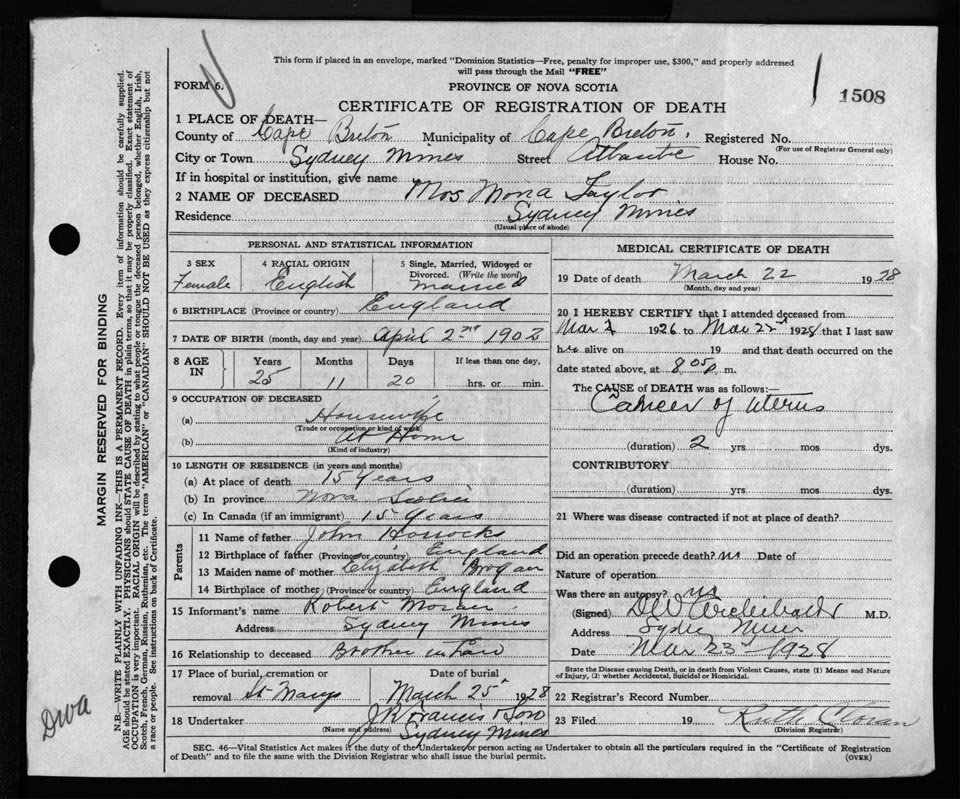 This form if placed in an envelope, marked "Dominion Statistics—Free, penalty for improper use, $300," and properly addressed
will pass through the Mail "FREE"
FORM 6.
PROVINCE OF NOVA SCOTIA
1508
CERTIFICATE OF REGISTRATION OF DEATH
1 PLACE OF DEATH—
County of Cape Breton Municipality of Cape Breton, Registered No.
(For use of Registrar General only)
City or Town Sydney Mines Street Atlantic House No.
If in hospital or institution, give name
2 NAME OF DECEASED Mrs Mona Taylor
Residence Sydney Mines
(Usual place of abode)
PERSONAL AND STATISTICAL INFORMATION
3 SEX 4 RACIAL ORIGIN 5 Single, Married, Widowed or Divorced. (Write the word)
Female English Married
6 BIRTHPLACE (Province or country) England
7 DATE OF BIRTH (month, day and year) April 2nd 1902
8 AGE IN Years Months Days If less than one day,
25 11 20 hrs. or min.
9 OCCUPATION OF DECEASED
(a) Housewife
(Trade or occupation or kind of work)
(b) At Home
(Kind of industry)
10 LENGTH OF RESIDENCE (in years and months)
(a) At place of death 15 Years
(b) In province Nova Scotia
(c) In Canada (if an immigrant) 15 Years
Parents
11 Name of father John Horrocks
12 Birthplace of father (Province or country) England
13 Maiden name of mother Elizabeth Brogan
14 Birthplace of mother (Province or country) England
15 Informant's name Robert
Address Sydney Mines
16 Relationship to deceased Brother in Law
17 Place of burial, cremation or removal St Marys
Date of burial
March 25 1928
18 Undertaker J R Francis & Son
(Name and address) Sydney Mines
MEDICAL CERTIFICATE OF DEATH
19 Date of death March 22 1928
(Month, day and year)
20 I HEREBY CERTIFY that I attended deceased from
Mar 1926 to Mar 22nd 1928 that I last saw
her alive on 19 and that death occurred on the
date stated above, at 8 05 p m.
The CAUSE of DEATH was as follows:—
Cancer of uterus
(duration) 2 yrs mos dys.
CONTRIBUTORY
(duration) yrs mos dys.
21 Where was disease contracted if not at place of death?
Did an operation precede death? no Date of
Nature of operation
Was there an autopsy? no
(Signed) DW Archibald M.D.
Address Sydney Mines
Date Mar 23rd 1928
State the Disease causing Death, or in death from Violent Causes, state (1) Means and Nature
of Injury, (2) whether Accidental, Suicidal or Homicidal.
22 Registrar's Record Number
23 Filed 19 Ruth
(Division Registrar)
SEC. 46—Vital Statistics Act makes it the duty of the Undertaker or person acting as Undertaker to obtain all the particulars required in the "Certificate of Registration
of Death" and to file the same with the Division Registrar who shall issue the burial permit.
(OVER)
MARGIN RESERVED FOR BINDING
N.B.—WRITE PLAINLY WITH UNFADING INK—THIS IS A PERMANENT RECORD. Every item of information should be carefully supplied.
AGE should be stated EXACTLY. PHYSICIANS should STATE CAUSE OF DEATH in plain terms, so that it may be properly classified. Exact statement of
OCCUPATION is very important. RACIAL ORIGIN will be described by stating to what people or tongue the deceased person belonged, whether English, Irish,
Scotch, French, German, Russian, Ruthenian, etc. The terms "AMERICAN" or "CANADIAN" SHOULD NOT BE USED as they express citizenship but not
a race or people. See instructions on back of Certificate.
DWA